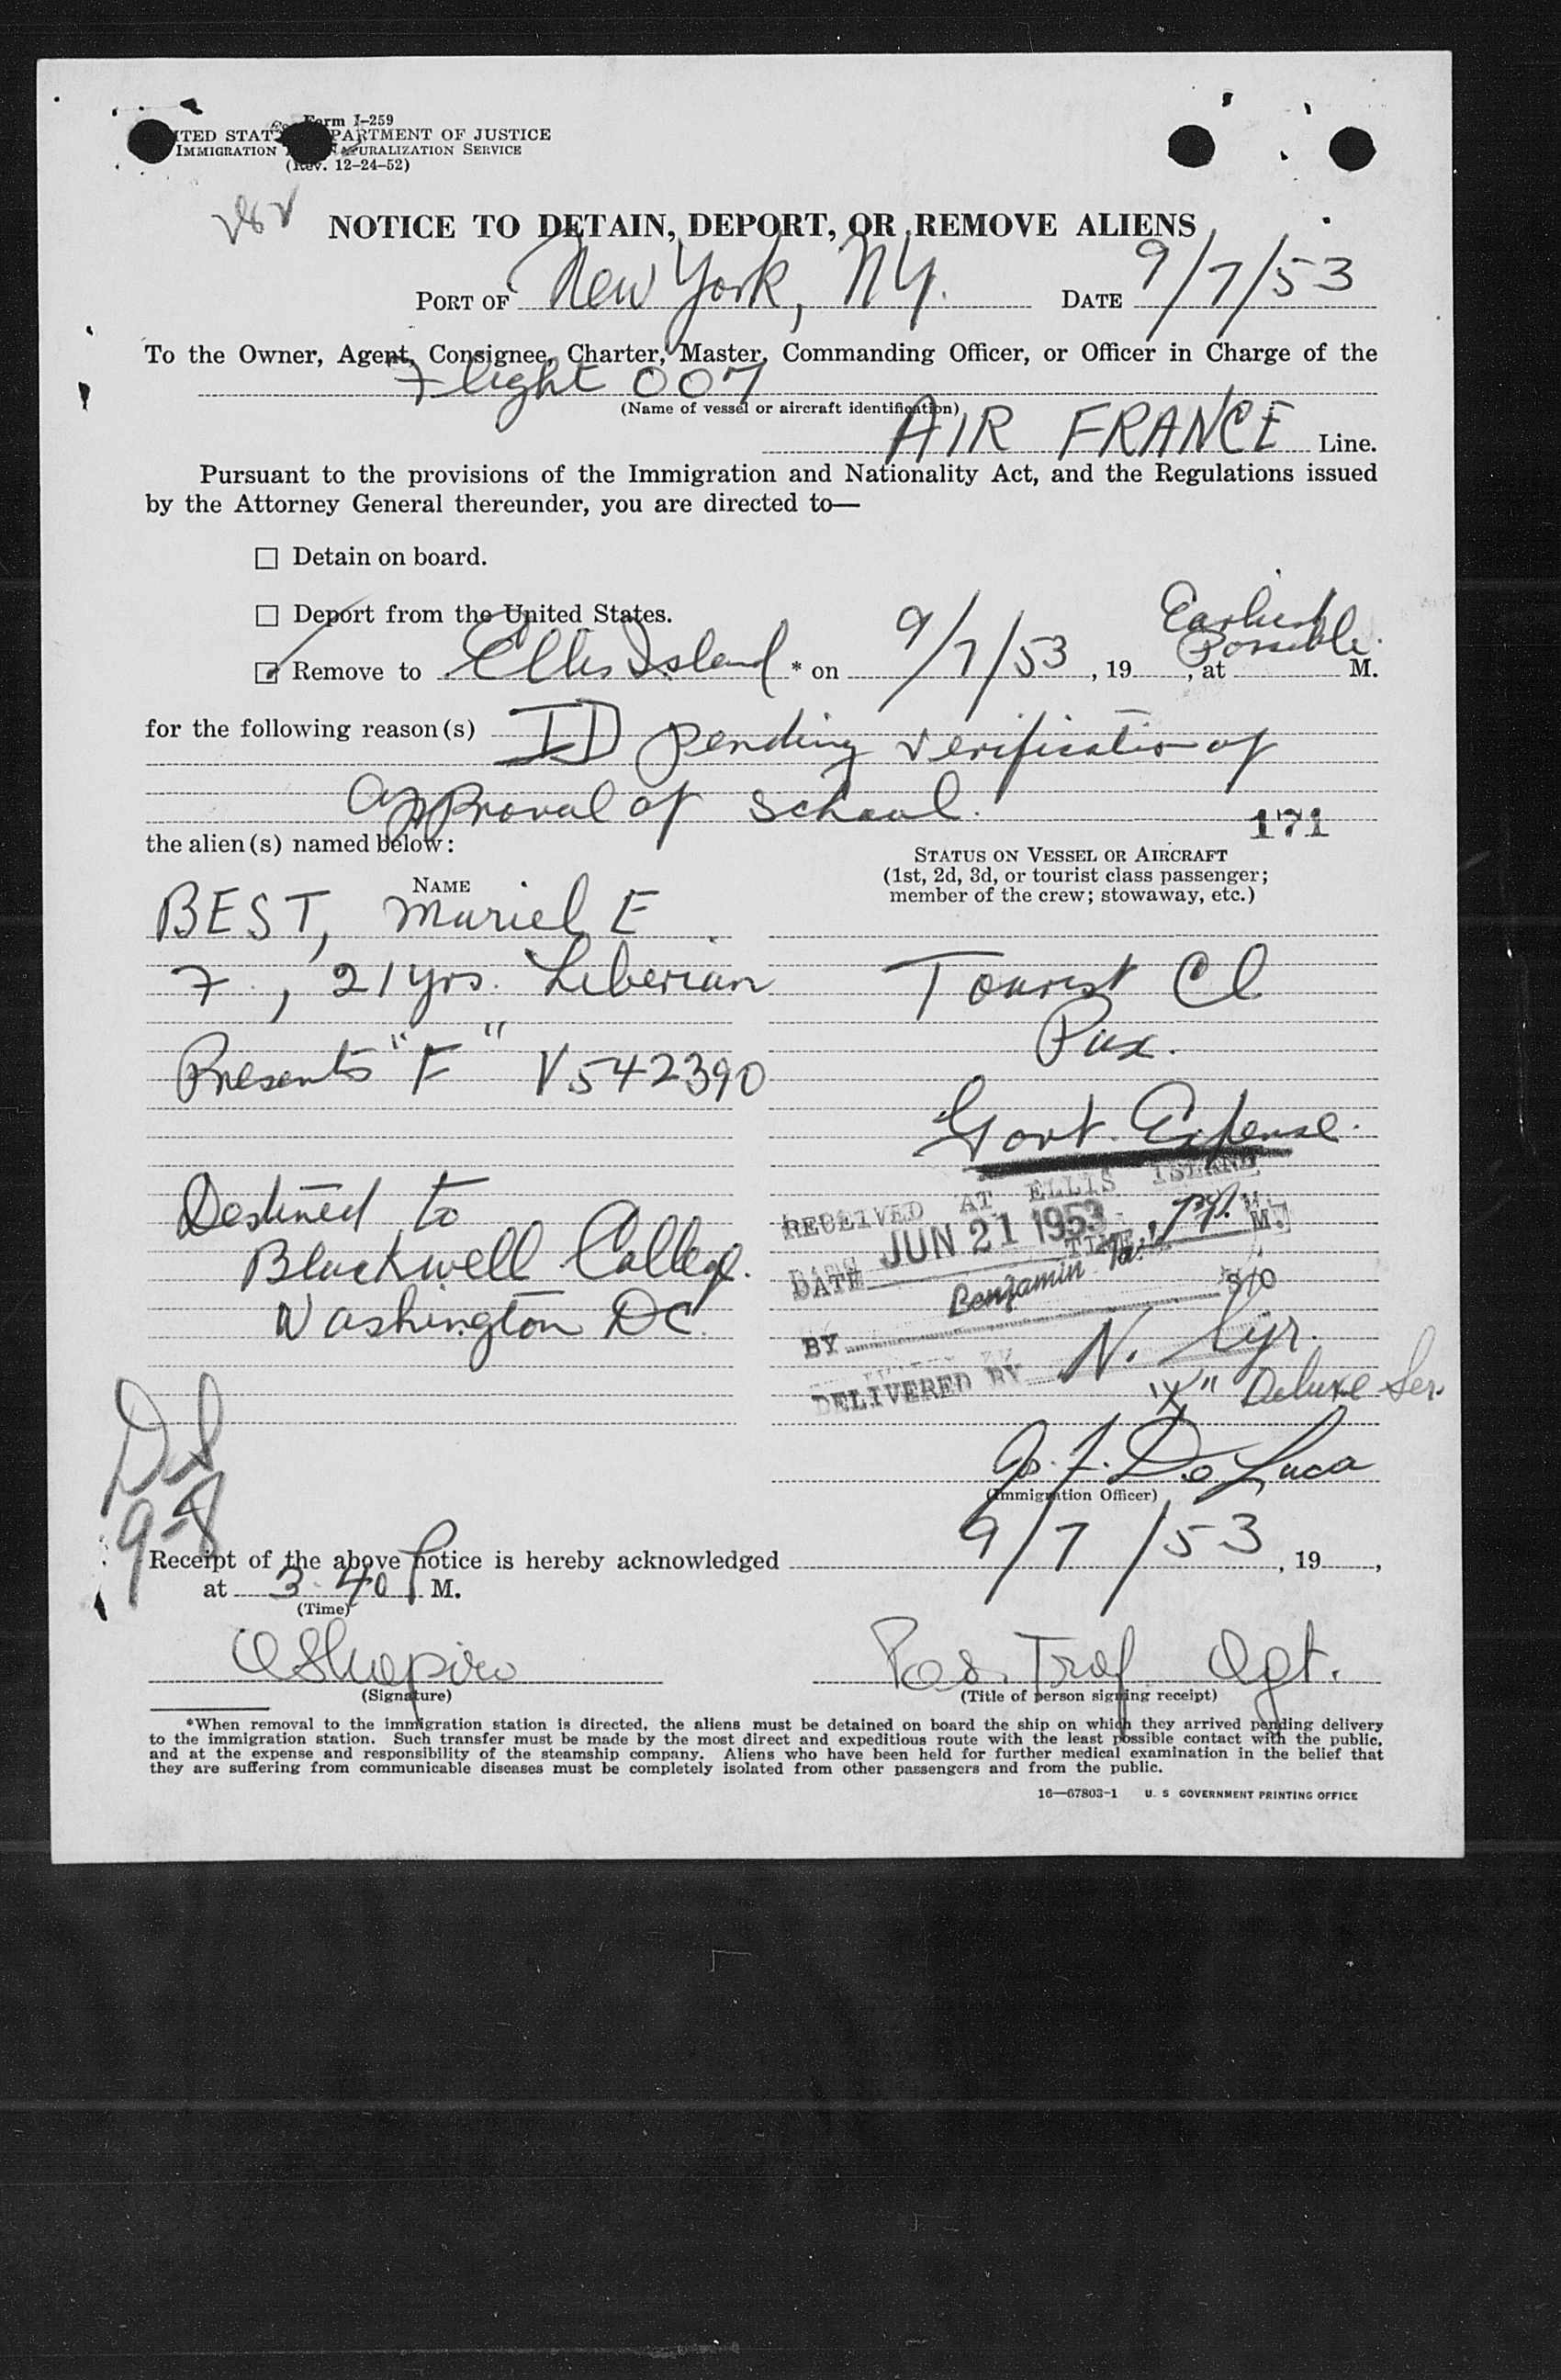 Form I-259
ITED STAT PARTMENT OF JUSTICE
IMMIGRATION NATURALIZATION SERVICE
(Rev. 12-24-52)
NOTICE TO DETAIN, DEPORT, OR REMOVE ALIENS
PORT OF New York, NY. DATE 9/7/53
To the Owner, Agent, Consignee, Charter, Master, Commanding Officer, or Officer in Charge of the
Flight 007
(Name of vessel or aircraft identification)
AIR FRANCE Line.
Pursuant to the provisions of the Immigration and Nationality Act, and the Regulations issued
by the Attorney General thereunder, you are directed to—
☐ Detain on board.
☐ Deport from the United States.
☑ Remove to Ellis Island * on 9/7/53, 19, at Earliest Possible. M.
for the following reason(s) ID pending verification of
approval of school.
171
the alien(s) named below:
NAME
STATUS ON VESSEL OR AIRCRAFT
(1st, 2d, 3d, or tourist class passenger;
member of the crew; stowaway, etc.)
BEST, Muriel E
F., 21 yrs. Liberian
Tourist Cl
Pax.
Presents "F" V542390
Govt. Expense.
Destined to
Blackwell College.
Washington DC.
RECEIVED AT ELLIS ISLAND
DATE JUN 21 1953 TIME M.
BY Benjamin
DELIVERED BY N.
"X" Deluxe Ser.
DS
9-8
Jos. F. De Luca
(Immigration Officer)
Receipt of the above notice is hereby acknowledged 9/7/53, 19,
at 3 40 P M.
(Time)
O Shapiro
(Signature)
Pas. Traf Agt.
(Title of person signing receipt)
*When removal to the immigration station is directed, the aliens must be detained on board the ship on which they arrived pending delivery
to the immigration station. Such transfer must be made by the most direct and expeditious route with the least possible contact with the public,
and at the expense and responsibility of the steamship company. Aliens who have been held for further medical examination in the belief that
they are suffering from communicable diseases must be completely isolated from other passengers and from the public.
16—67803-1 U. S GOVERNMENT PRINTING OFFICE